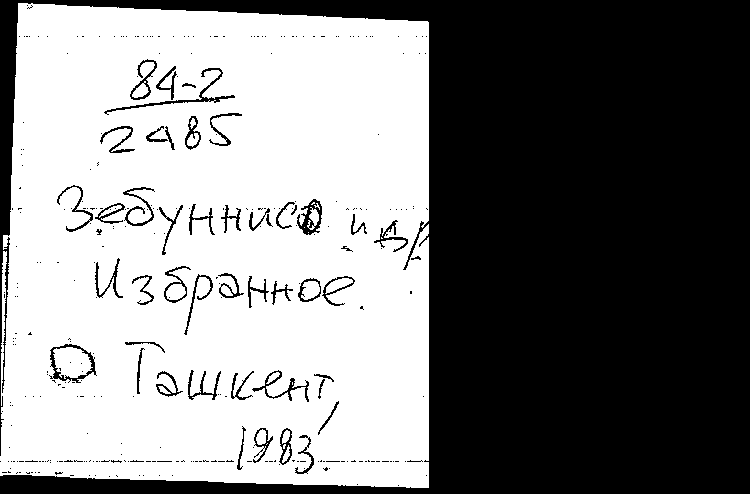 84-2
2485
Зебуннисо и др
Избранное.
Ташкент,
1983.